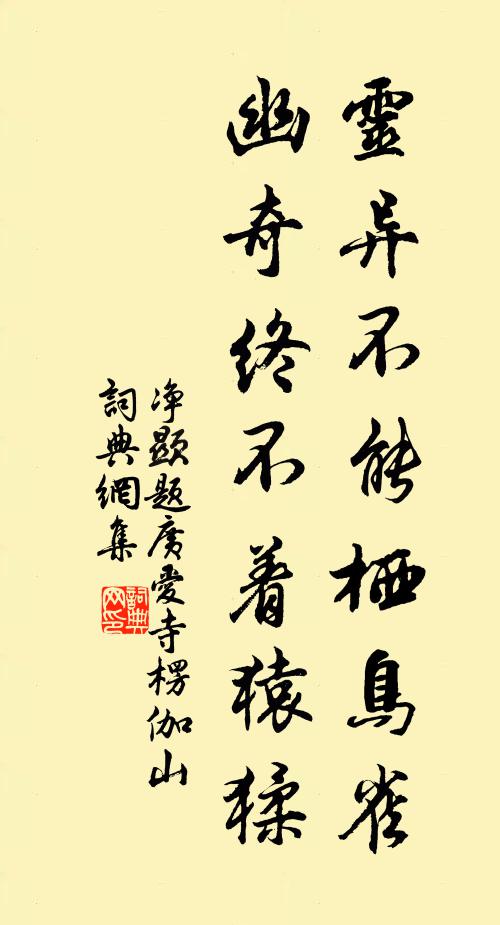 靈异不能栖鳥雀
幽奇終不着猿猱
净顯題廣愛寺楞伽山
詞典網集
詞典网印